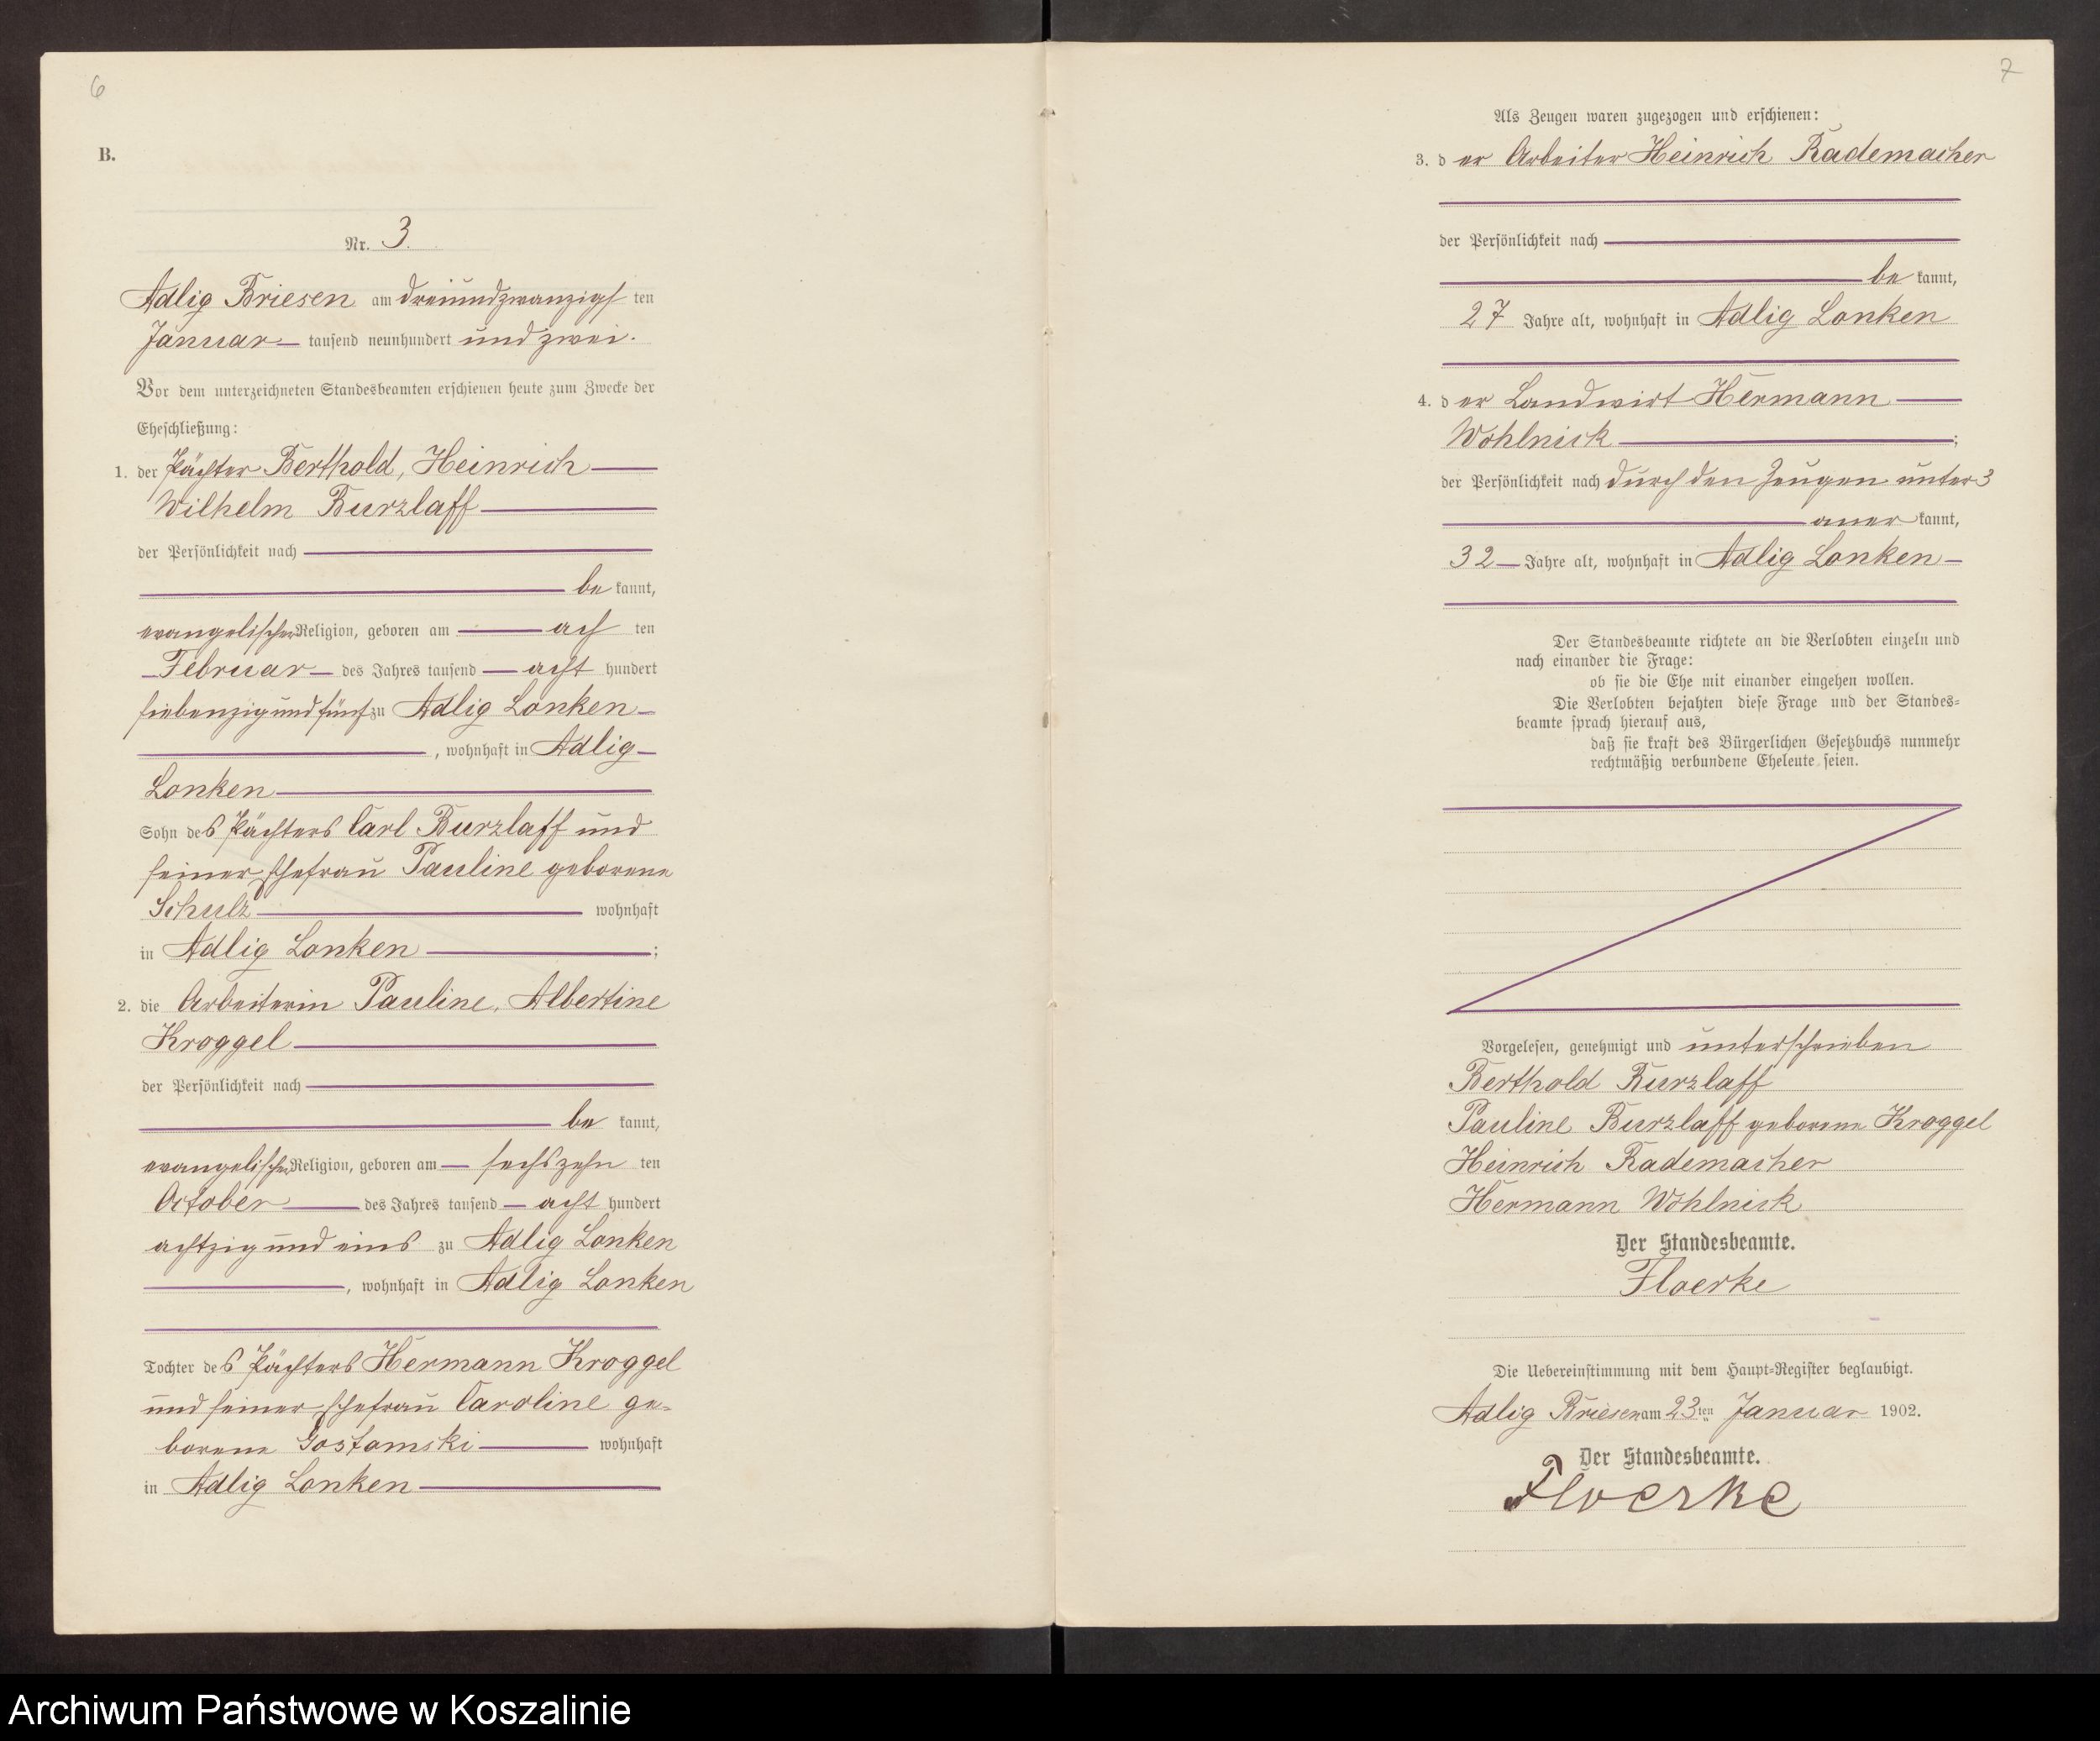 6
B.
Nr. 3.
Adlig Briesen am dreiundzwanzigsten
Januar tausend neunhundert und zwei.
Vor dem unterzeichneten Standesbeamten erschienen heute zum Zwecke der
Eheschließung:
1. der Pächter Berthold, Heinrich
Wilhelm Burzlaff
der Persönlichkeit nach
bekannt,
evangelischer Religion, geboren am achten
Februar des Jahres tausend acht hundert
siebenzig und fünf zu Adlig Lonken
, wohnhaft in Adlig
Lonken
Sohn des Pächters Carl Burzlaff und
seiner Ehefrau Pauline geborene
Schulz wohnhaft
in Adlig Lonken ;
2. die Arbeiterin Pauline, Albertine
Kroggel
der Persönlichkeit nach
bekannt,
evangelischer Religion, geboren am sechszehnten
October des Jahres tausend acht hundert
achtzig und eins zu Adlig Lonken
, wohnhaft in Adlig Lonken
Tochter des Pächters Hermann Kroggel
und seiner Ehefrau Caroline ge-
borene Gostomski wohnhaft
in Adlig Lonken
7
Als Zeugen waren zugezogen und erschienen:
3. der Arbeiter Heinrich Rademacher
der Persönlichkeit nach
bekannt,
27 Jahre alt, wohnhaft in Adlig Lonken
4. der Landwirt Hermann
Wohlnick ;
der Persönlichkeit nach durch den Zeugen unter 3
anerkannt,
32 Jahre alt, wohnhaft in Adlig Lonken
Der Standesbeamte richtete an die Verlobten einzeln und
nach einander die Frage:
ob sie die Ehe mit einander eingehen wollen.
Die Verlobten bejahten diese Frage und der Standes-
beamte sprach hierauf aus,
daß sie kraft des Bürgerlichen Gesetzbuchs nunmehr
rechtmäßig verbundene Eheleute seien.
Vorgelesen, genehmigt und unterschrieben
Berthold Burzlaff
Pauline Burzlaff geborene Kroggel
Heinrich Rademacher
Hermann Wohlnick
Der Standesbeamte.
Floerke
Die Uebereinstimmung mit dem Haupt-Register beglaubigt.
Adlig Briesen am 23ten Januar 1902.
Der Standesbeamte.
Floerke
Archiwum Państwowe w Koszalinie